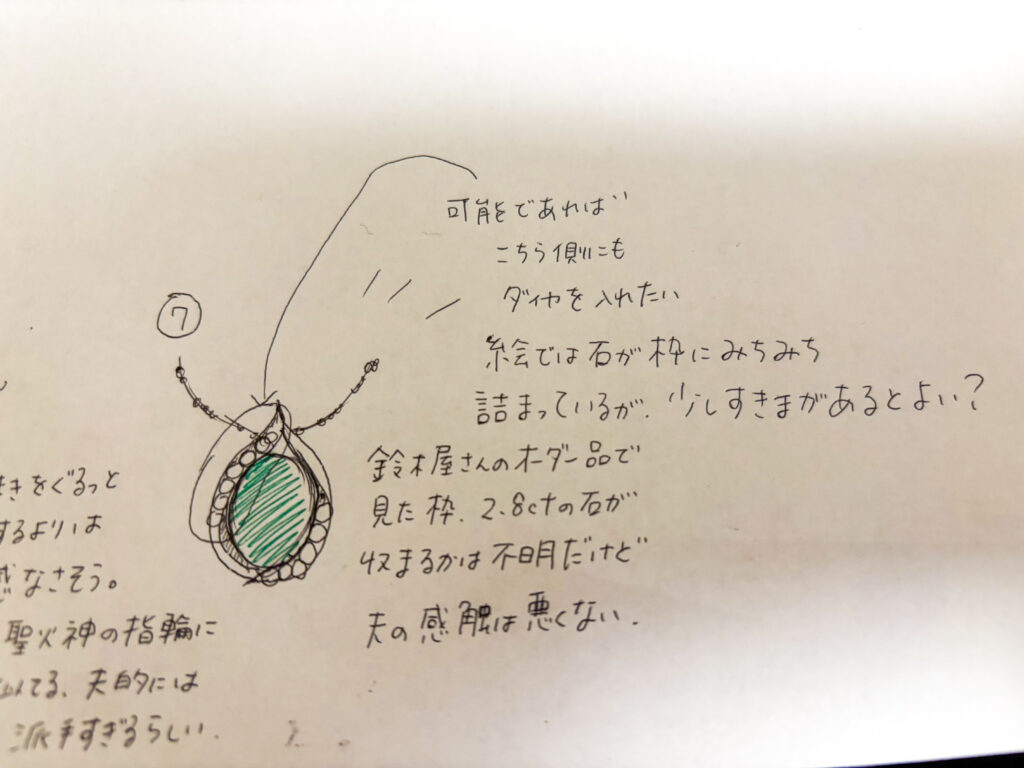 可能であれば
こちら側にも
ダイヤを入れたい
⑦
絵では石が枠にみちみち
詰まっているが、少しすきまがあるとよい?
鈴木屋さんのオーダー品で
見た枠、2.8ctの石が
収まるかは不明だけど
夫の感触は悪くない.
きをぐるっと
するよりは
感なさそう。
聖火神の指輪に
似てる、夫的には
派手すぎるらしい.